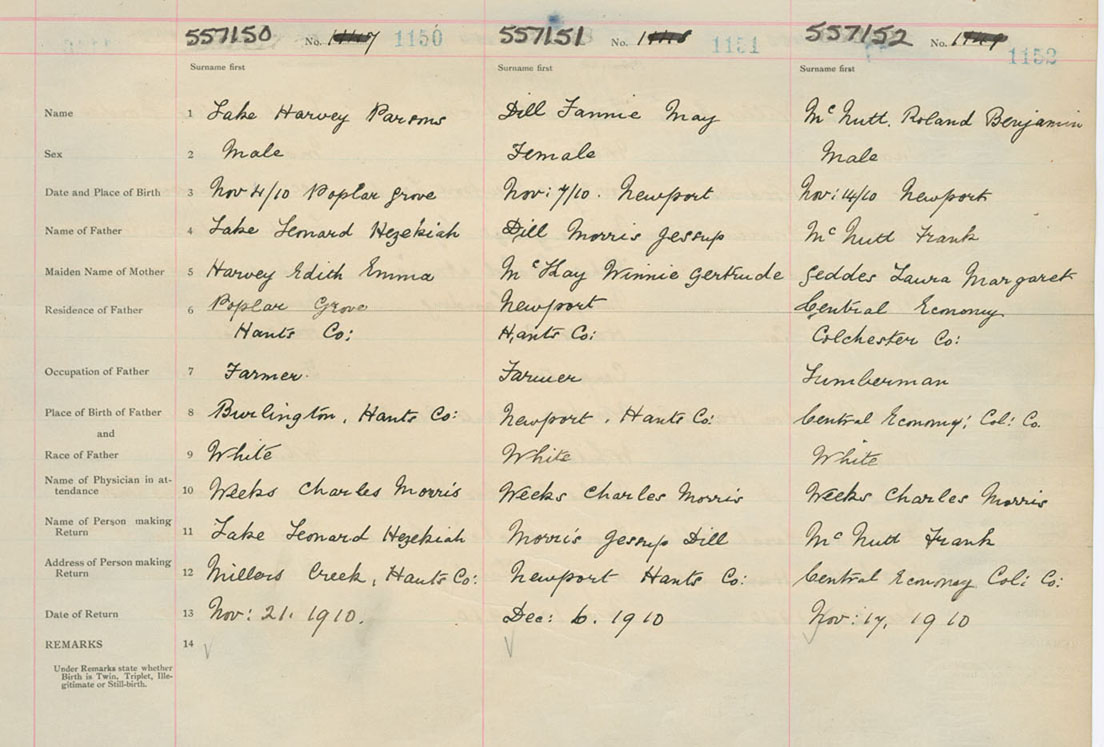 557150 No. 1150 557151 No. 1151 557152 No. 1152
Surname first Surname first Surname first
Name 1 Lake Harvey Parsons Dill Fannie May McNutt. Roland Benjamin
Sex 2 Male Female Male
Date and Place of Birth 3 Nov 4/10 Poplar Grove Nov: 7/10. Newport Nov: 14/10 Newport
Name of Father 4 Lake Leonard Hezekiah Dill Morris Jessup McNutt Frank
Maiden Name of Mother 5 Harvey Edith Emma McKay Winnie Gertrude Geddes Laura Margaret
Residence of Father 6 Poplar Grove Newport Central Economy
Hants Co: Hants Co: Colchester Co:
Occupation of Father 7 Farmer. Farmer Lumberman
Place of Birth of Father 8 Burlington, Hants Co: Newport. Hants Co: Central Economy; Col: Co.
and
Race of Father 9 White White White
Name of Physician in at-
tendance 10 Weeks Charles Morris Weeks Charles Morris Weeks Charles Morris
Name of Person making
Return 11 Lake Leonard Hezekiah Morris Jessup Dill McNutt Frank
Address of Person making
Return 12 Millers Creek, Hants Co: Newport Hants Co: Central Economy Col: Co:
Date of Return 13 Nov: 21. 1910. Dec: 6. 1910 Nov: 17. 1910
REMARKS 14
Under Remarks state whether
Birth is Twin, Triplet, Ille-
gitimate or Still-birth.